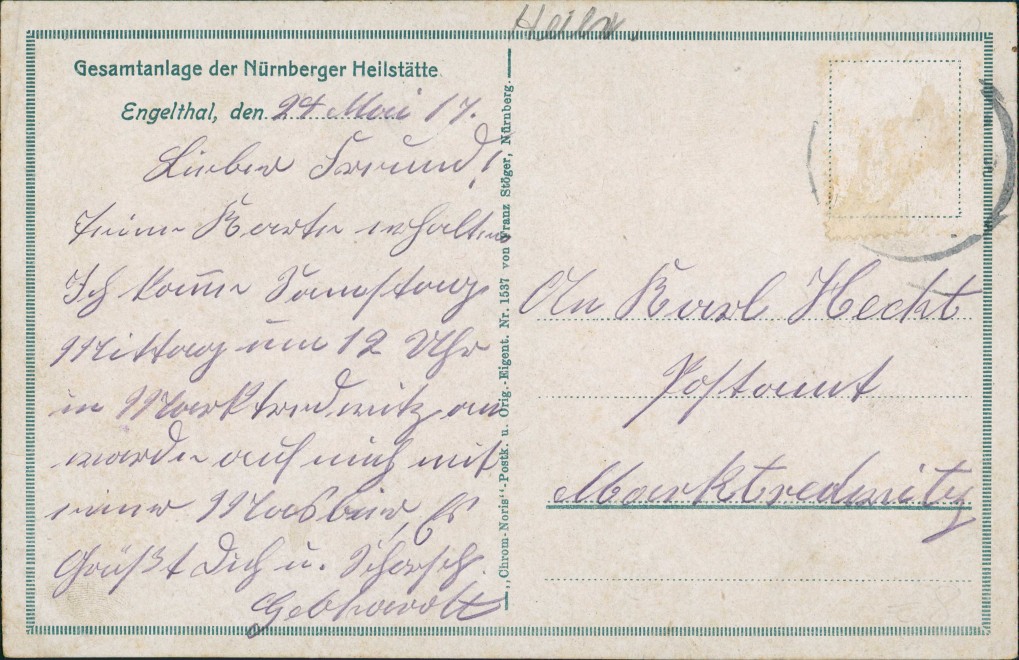 Heiln.
Gesamtanlage der Nürnberger Heilstätte
Engelthal, den 24 Mai 17.
Lieber Freund!
Deine Karte erhalten
Ich komme Samstag
Mittag um 12 Uhr
in Marktredwitz an
warde auf mich mit
einer Masbier, Es
Grüßt Dich u. Schorsch
Gebhardt
„Chrom-Noris"-Postk. u. Orig.-Eigent. Nr. 1537 von Franz Stöger, Nürnberg.
An Karl Hecht
Postamt
Marktredwitz